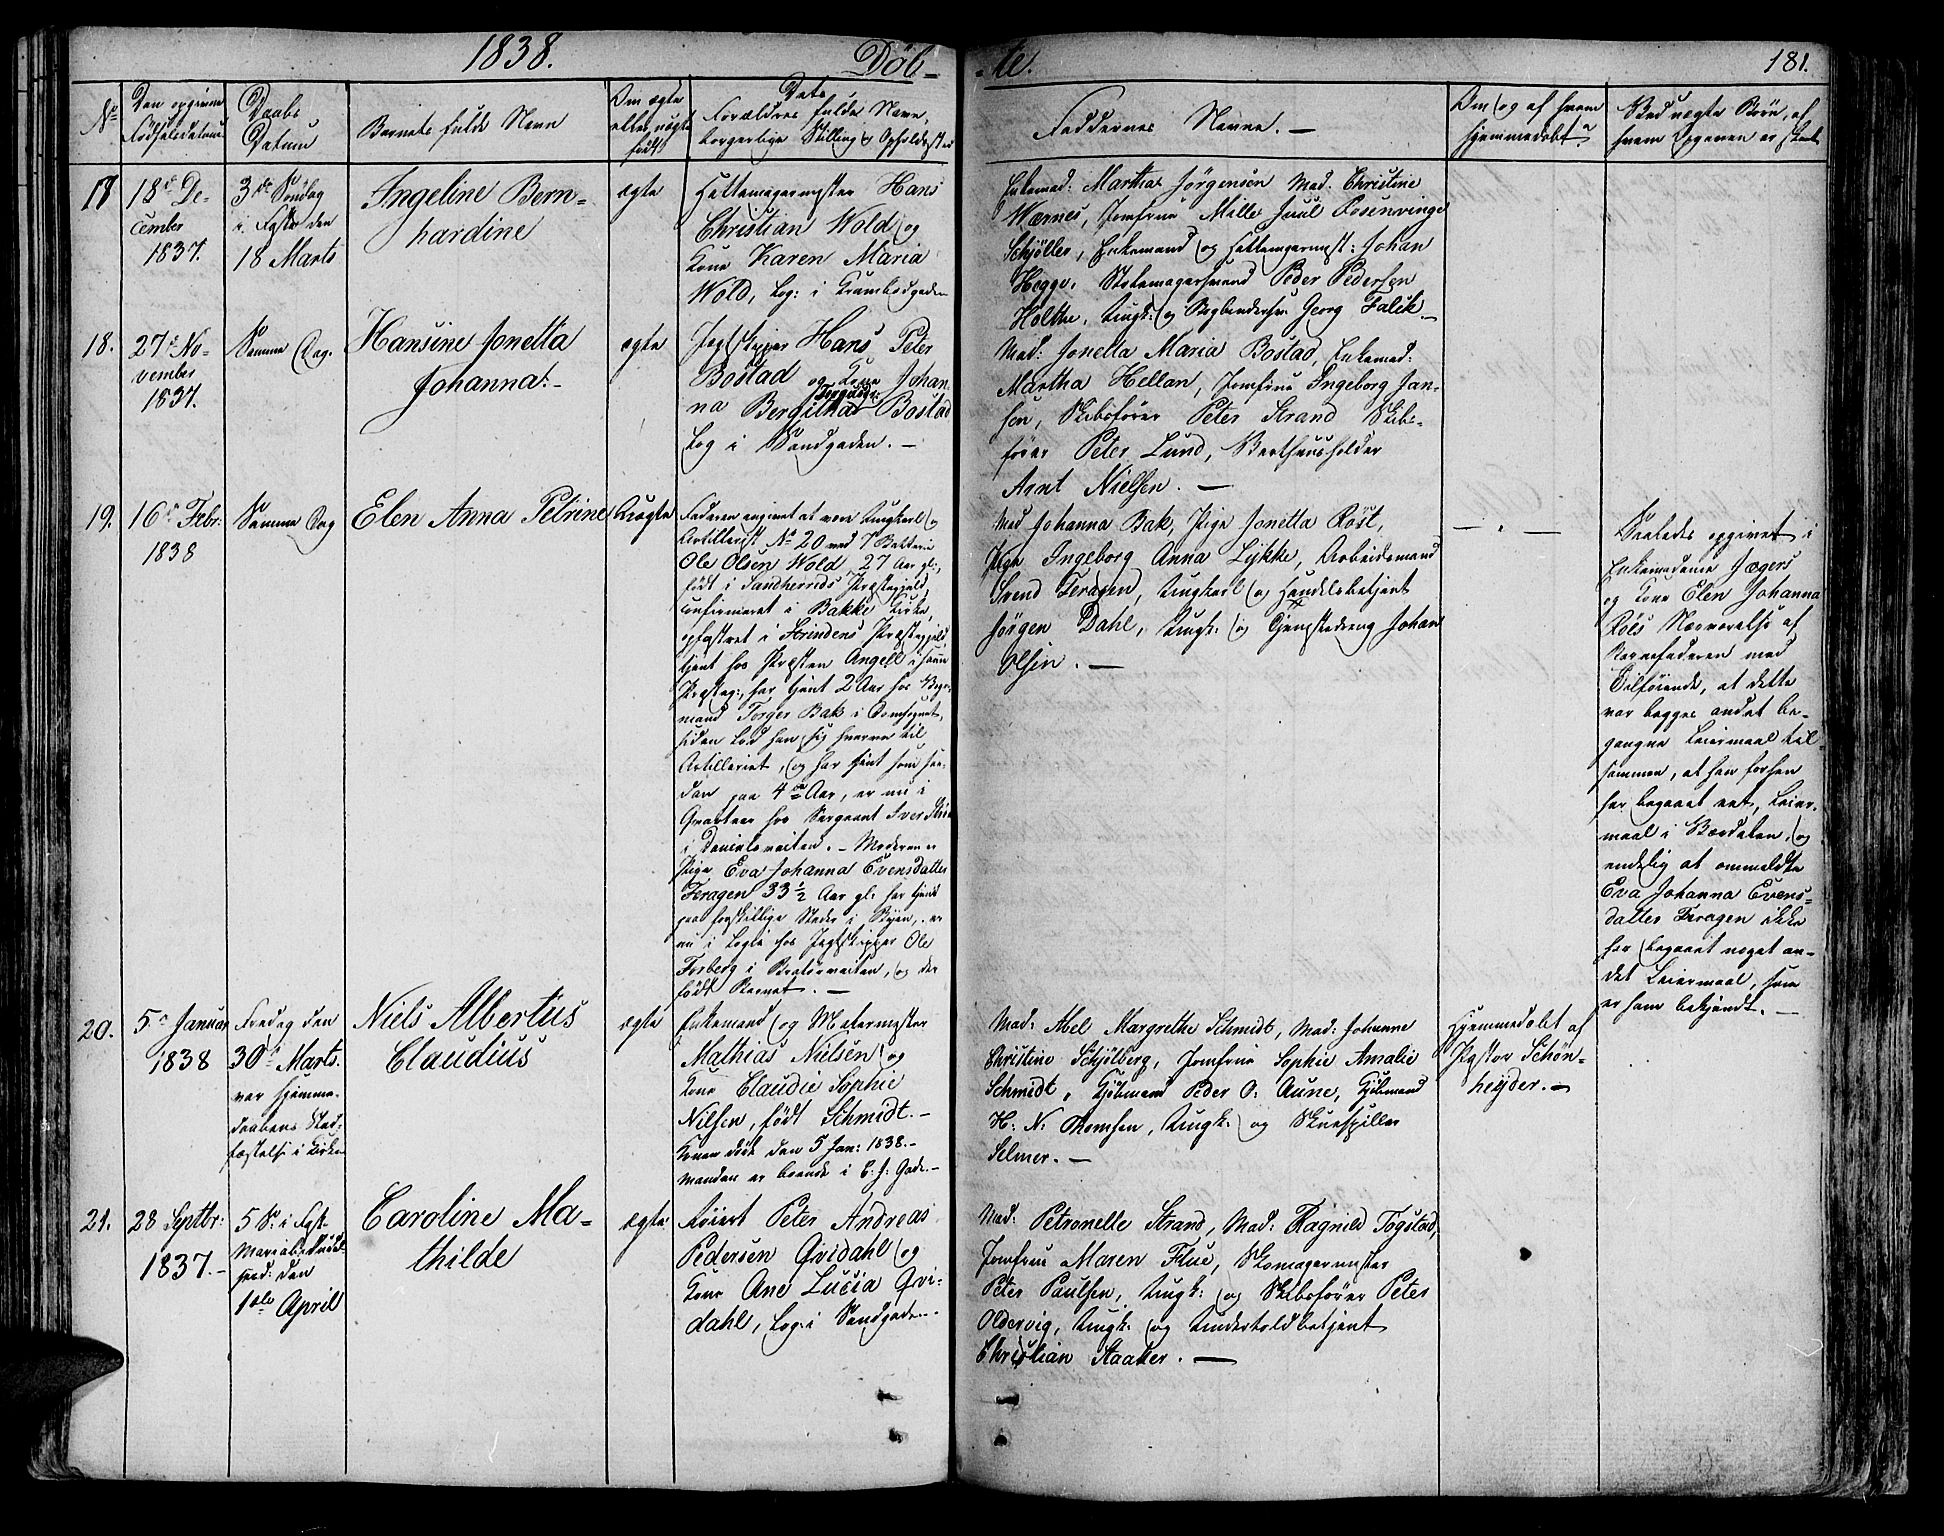 1838.
Døb-
-te.
181.
No
Den opgivne
Fødselsdatum
Daabs
Datum
Barnets fulde Navn
Om ægte
eller uægte
født
Dets
Forældres fulde Navn,
borgerlige Stilling og Opholdssted
Faddernes Navne. —
Om og af hvem
hjemmedøbt?
Ved uægte Børn, af
hvem Opgaven er skeet
17
18de De-
cember
1837.
3die Søndag
i Faste den
18 Marts
Ingeline Bern-
hardine
ægte
Hattemagermester Hans
Christian Wold og
Kone Karen Maria
Wold, Log: i Krambodgaden
Enkemad: Martha Jörgensen Mad: Christine
Wærnes, Jomfrue Mille Juul Rosenvinge
Schjöller, Enkemand og Hattemagermest: Johan
Hegge, Peder Pedersen
Holthe, Ungk: og Bogbindersv. Georg Falck —
18.
27de No-
vember
1837.
Samme Dag.
Hansine Jonetta
Johanna.-
ægte
Jagtskipper Hans Peter
Bostad og Kone Johan-
na Bergitha Bostad
Log i Sandgaden. —
Mad: Jonetta Maria Bostad, Enkemad:
Martha Hellan, Jomfrue Ingeborg Jan-
sen, Skibsfører Peter Strand Skibs-
fører Peter Lund, Værthuusholder
Arnt Nielsen. —
19.
16de Febr:
1838
Samme Dag
Elen Anna Petrine
Uægte
Faderen angivet at være Ungkarl og
Artillerist No 20 ved 7 Batterie
Ole Olsen Wold 27 Aar gl:,
født i Sandherreds Præstegjeld,
confirmeret i Bakke Kirke,
opfostret i Strindens Præstegjeld
tjent hos Præsten Angell i samme
Præsteg:, har tjent 2 Aar hos
mand Torger Bak i Domsognet,
siden lod han sig hverve til
Artilleriet, og har tjent som saa-
dan paa 4de Aar, er nu i
Qvarteer hos Sergeant Iver
i Danielsveiten. — Moderen er
Pige Eva Johanna Evensdatter
Feragen 33 1/2 Aar gl: har tjent
paa forskillige Steder i Byen, er
nu i Logie hos Jagtskipper Ole
Forberg i Bratörveiten, og der
født Barnet. —
Mad Johanna Bak, Pige Jonetta Röst,
Pige Ingeborg Anna Lykke, Arbeidsmand
Svend Feragen, Ungkarl og Handelsbetjent
Jörgen Dahl, Ungk: og Johan
Olsen. —
— " —
Saaledes opgivet i
Enkemadame Jægers
og Kone Elen Johanna
Röls Nærværelse af
Barnefaderen med
Tilføiende, at dette
var begges andet be-
gangne Leiermaal til-
sammen, at han forhen
har begaaet eet, Leier-
maal i Værdalen, og
endelig at ommeldte
Eva Johanna Evens-
datter Feragen ikke
har begaaet noget an-
det Leiermaal, som
er ham bekjendt. —
20.
5te Januar
1838
Fredag den
30de Marts.
var hjemme-
daabens Stad-
fæstelse i Kirken
Niels Albertus
Claudius
ægte
Enkemand og Malermester
Mathias Nielsen og
Kone Claudie Sophie
Nilsen, født Schmidt. —
Konen døde den 5 Jan: 1838. —
Manden er boende i Gade. —
Mad: Abel Margrethe Schmidt, Mad: Johanne
Christine Schjölberg, Jomfrue Sophie Amalie
Schmidt, Kjöbmand Peder O. Aune, Kjöbmand
H. N. Thomsen, Ungk: og Skuespiller
Selmer. —
Hjemmedøbt af
Pastor Schön-
heyder. —
21.
28 Septbr:
1837. —
5 S: i Fast-
Mariæ
den
1ste April
Caroline Ma-
thilde
ægte.
Peter Andreas
Pedersen Qvidahl og
Kone Ane Lucia Qvi-
dahl, Log: i Sandgaden.
Mad: Petronelle Strand, Mad: Ragnild Togstad,
Jomfrue Maren Flue, Skomagermester
Peter Paulsen, Ungk: og Skibsfører Peter
Oldervig, Ungk: og Undertoldbetjent
Christian Staatter. —